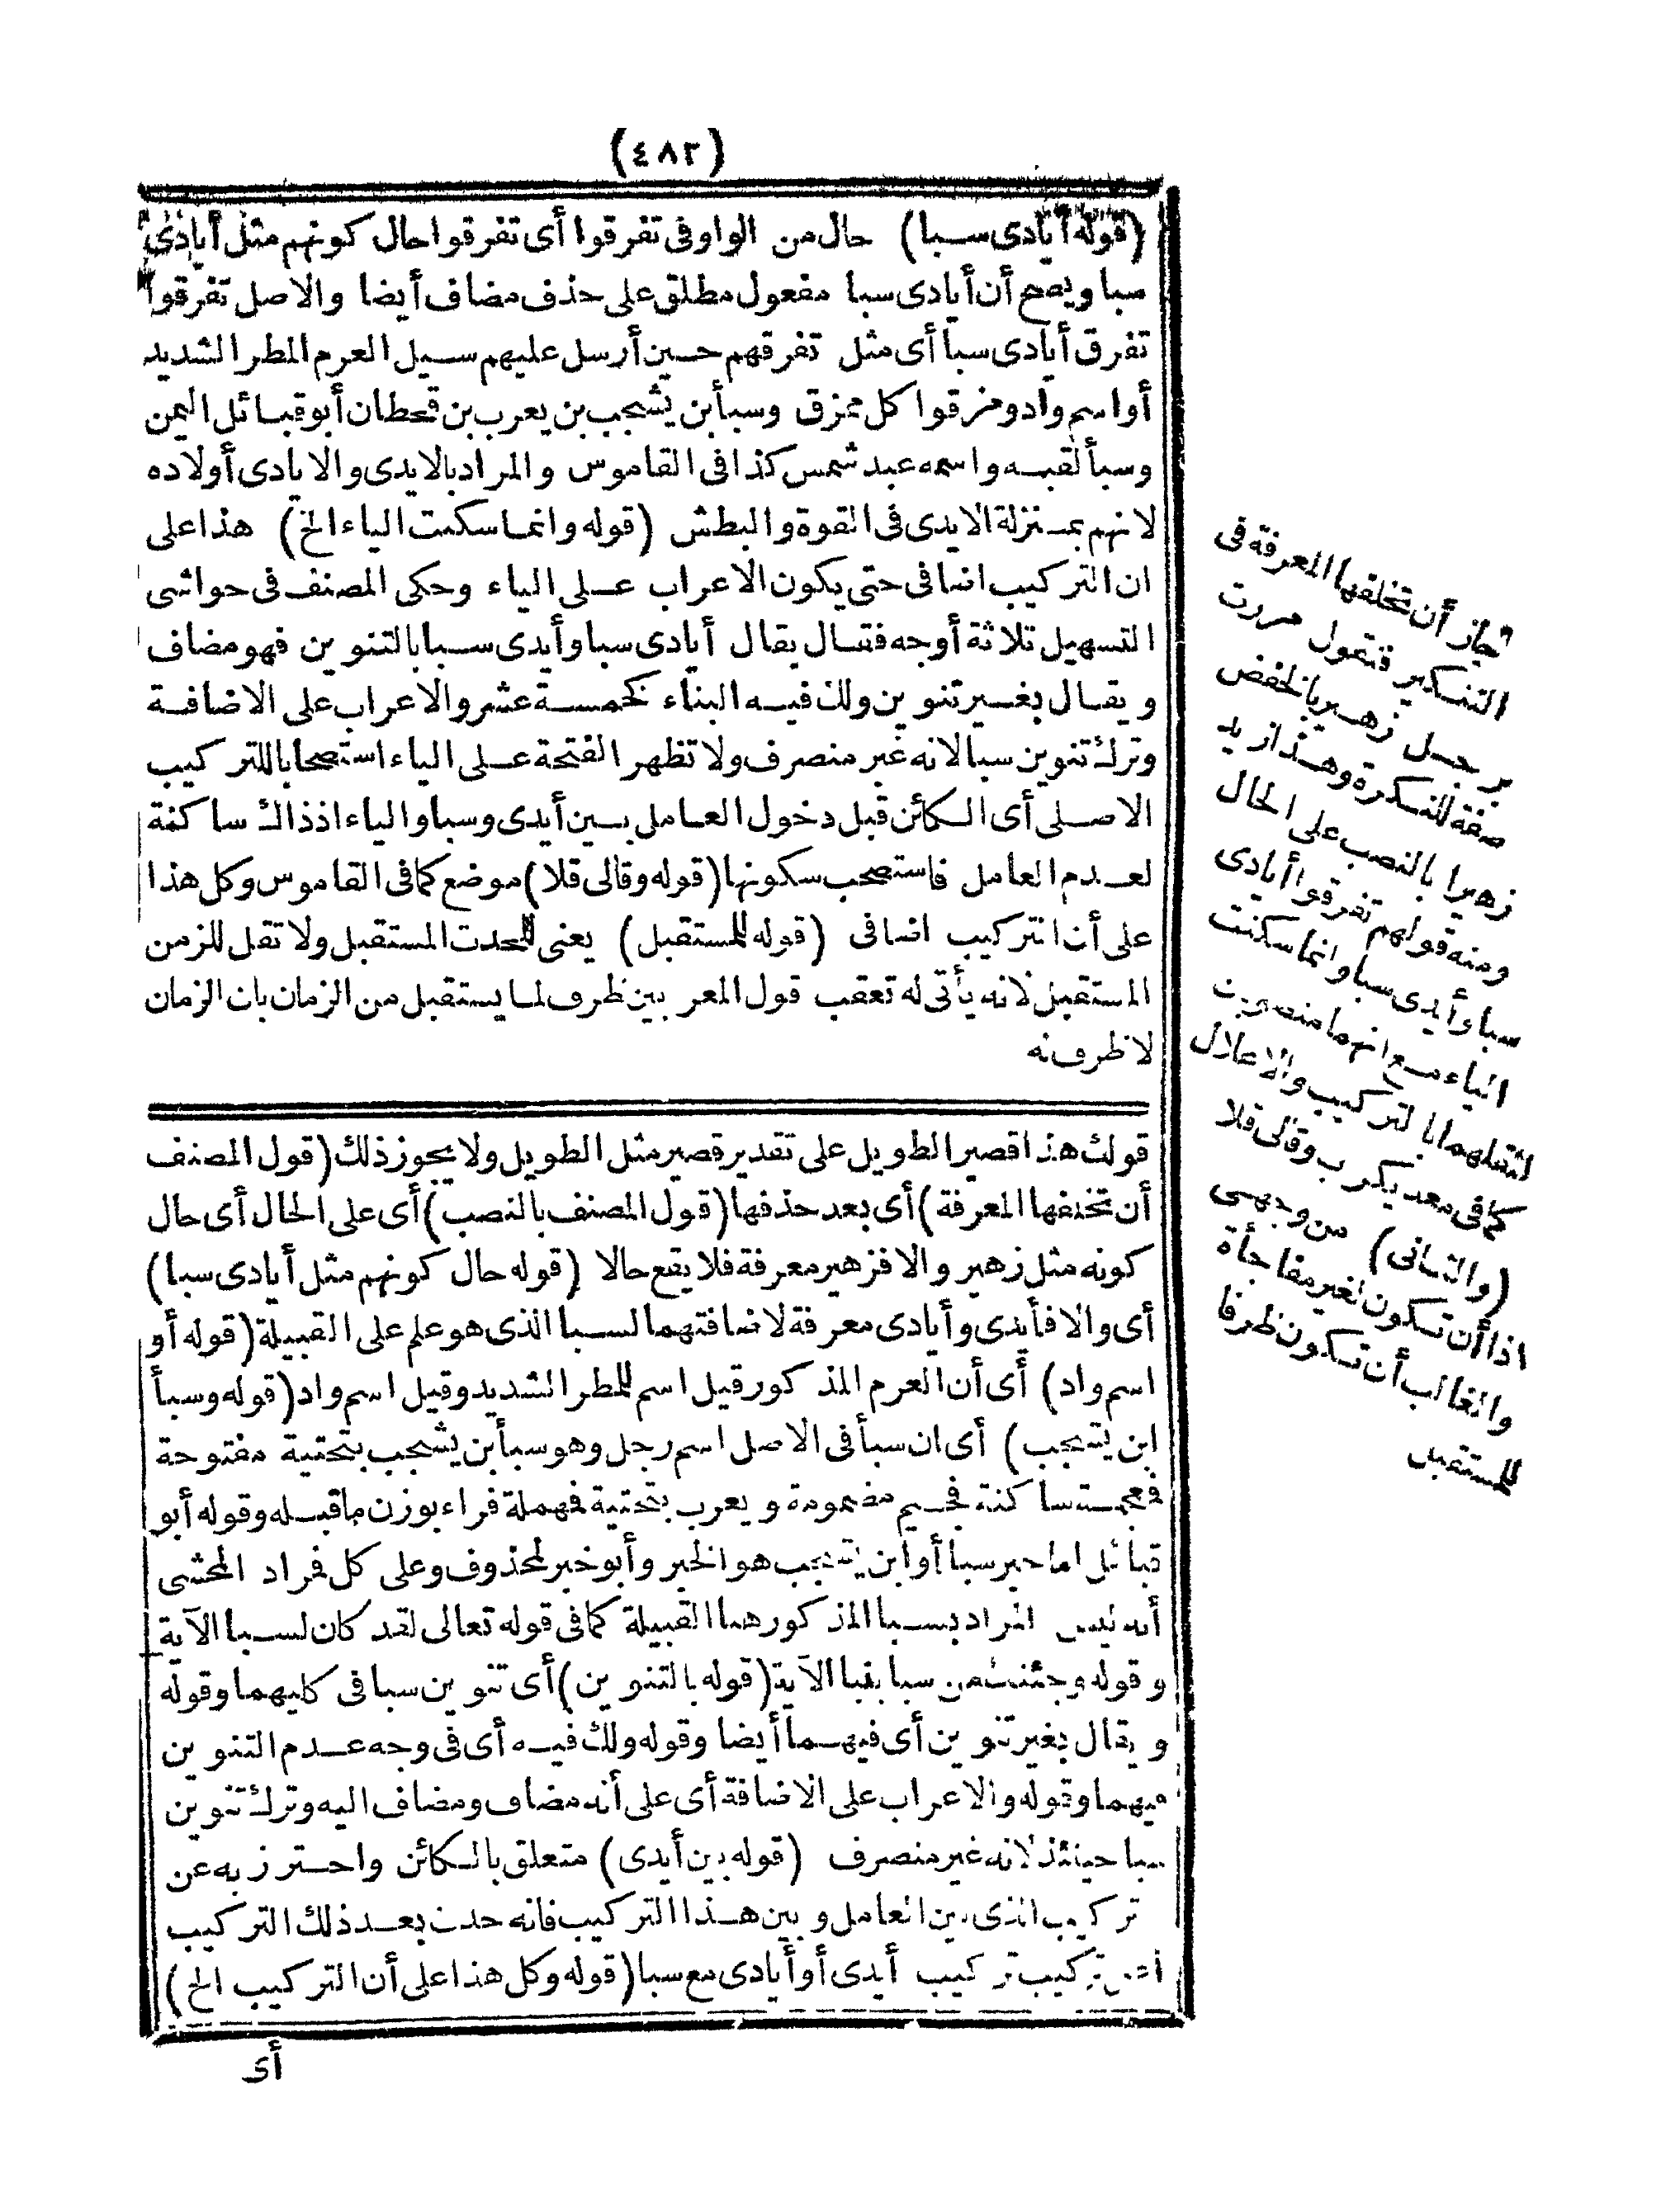 (٤٨٢)
(قوله أيادى سبا) حال من الواو فى تفرقوا أى تفرقوا حال كونهم مثل أيادى
سبا ويصح أن أيادى سبا مفعول مطلق على حذف مضاف أيضا والاصل تفرقوا
تفرق أيادى سبا أى مثل تفرقهم حين أرسل عليهم سيل العرم المطر الشديد
أو اسم واد ومزقوا كل ممزق وسبأ بن يشجب بن يعرب بن قحطان أبو قبائل اليمن
وسبأ لقبه واسمه عبد شمس كذا فى القاموس والمراد بالايدى والايادى أولاده
لانهم بمنزلة الايدى فى القوة والبطش (قوله وانما سكنت الياء الخ) هذا على
ان التركيب اضافى حتى يكون الاعراب على الياء وحكى المصنف فى حواشى
التسهيل ثلاثة أوجه فقال يقال أيادى سبا وأيدى سبا بالتنوين فهو مضاف
ويقال بغير تنوين ولك فيه البناء كخمسة عشر والاعراب على الاضافة
وترك تنوين سبا لانه غير منصرف ولا تظهر الفتحة على الياء استصحابا للتركيب
الاصلى أى الكائن قبل دخول العامل بين أيدى وسبا والياء اذ ذاك ساكنة
لعدم العامل فاستصحب سكونها (قوله وقالى قلا) موضع كما فى القاموس وكل هذا
على أن التركيب اضافى (قوله للمستقبل) يعنى للحدث المستقبل ولا تقل للزمن
المستقبل لانه يأتى له تعقب قول المعربين ظرف لما يستقبل من الزمان بان الزمان
لا ظرف له
قولك هذا قصير الطويل على تقدير قصير مثل الطويل ولا يجوز ذلك (قول المصنف
أن تخلفها المعرفة) أى بعد حذفها (قول المصنف بالنصب) أى على الحال أى حال
كونه مثل زهير والا فزهير معرفة فلا يقع حالا (قوله حال كونهم مثل أيادى سبا)
أى والا فأيدى وأيادى معرفة لاضافتهما لسبا الذى هو علم على القبيلة (قوله أو
اسم واد) أى أن العرم المذكور قيل اسم للمطر الشديد وقيل اسم واد (قوله وسبأ
ابن يشجب) أى ان سبأ فى الاصل اسم رجل وهو سبأ بن يشجب بتحتية مفتوحة
فمعجمة ساكنة فجيم مضمومة ويعرب بتحتية فمهملة فراء بوزن ما قبله وقوله أبو
قبائل اما خبر سبا أو ابن يشجب هو الخبر وأبو خبر لمحذوف وعلى كل فراد المحشى
أنه ليس المراد بسبا المذكور هنا القبيلة كما فى قوله تعالى لقد كان لسبا الآية
وقوله وجئتك من سبا بنبا الآية (قوله بالتنوين) أى تنوين سبا فى كليهما وقوله
ويقال بغير تنوين أى فيهما أيضا وقوله ولك فيه أى فى وجه عدم التنوين
فيهما وقوله والاعراب على الاضافة أى على أنه مضاف ومضاف اليه وترك تنوين
سبا حينئذ لانه غير منصرف (قوله بين أيدى) متعلق بالكائن واحترز به عن
تركيب الذى بين العامل وبين هذا التركيب فانه حدث بعد ذلك التركيب
تركيب أيدى أو أيادى مع سبا (قوله وكل هذا على أن التركيب الخ)
أى
فجاز أن تخلفها المعرفة فى
التنكير فتقول مررت
برجل زهير بالخفض
صفة للنكرة وهذا زيد
زهيرا بالنصب على الحال
ومنه قولهم تفرقوا أيادى
سبا وأيدى سبا وانما سكنت
الياء مع انهما منصوبان
لثقلهما بالتركيب والاعلال
كما فى معد يكرب وقالى قلا
(والثانى) من وجهى
اذا أن تكون لغير مفاجأة
والغالب أن تكون ظرفا
للمستقبل